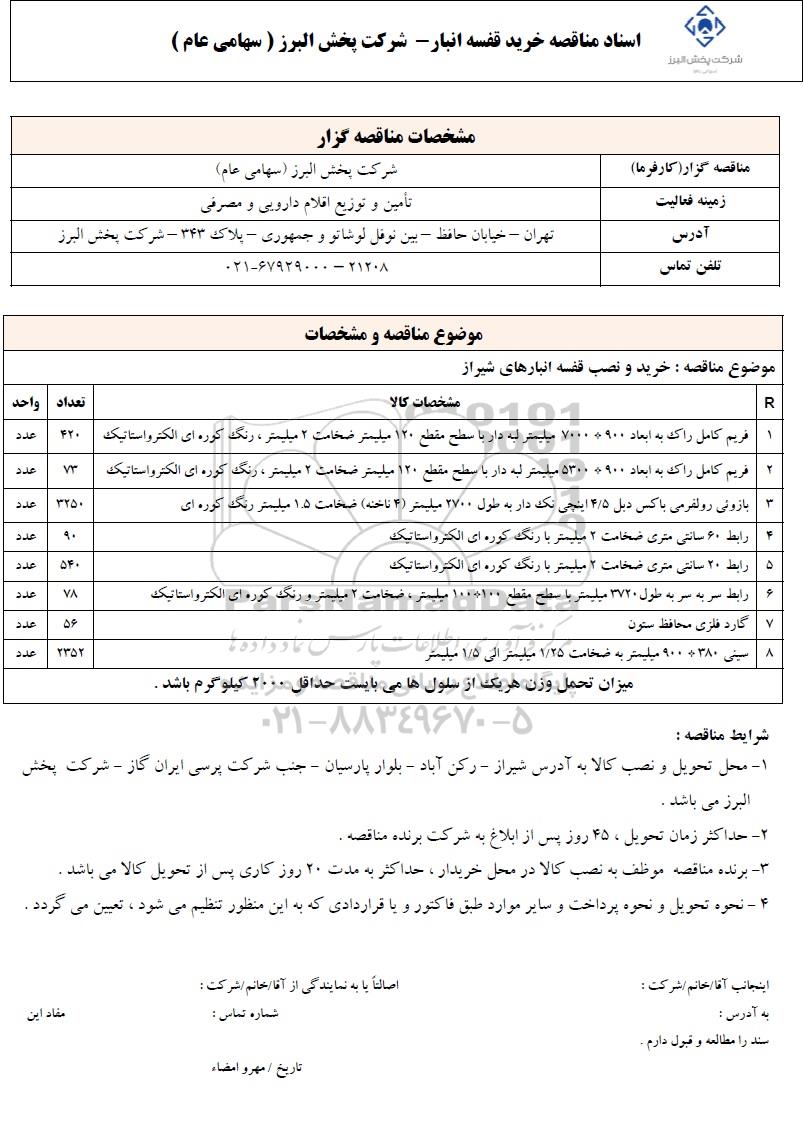 اسناد مناقصه خرید قفسه انبار – شرکت پخش البرز ( سهامی عام )
شرکت پخش البرز
مشخصات مناقصه گزار
مناقصه گزار(کارفرما) شرکت پخش البرز (سهامی عام)
زمینه فعالیت تأمین و توزیع اقلام دارویی و مصرفی
آدرس تهران – خیابان حافظ – بین نوفل لوشاتو و جمهوری – پلاک ۳۴۳ – شرکت پخش البرز
تلفن تماس ۲۱۲۰۸ – ۰۲۱-۶۷۹۲۹۰۰۰
موضوع مناقصه و مشخصات
موضوع مناقصه : خرید و نصب قفسه انبارهای شیراز
R مشخصات کالا تعداد واحد
۱ فریم کامل راک به ابعاد ۹۰۰ * ۷۰۰۰ میلیمتر لبه دار با سطح مقطع ۱۲۰ میلیمتر ضخامت ۲ میلیمتر ، رنگ کوره ای الکترواستاتیک ۴۲۰ عدد
۲ فریم کامل راک به ابعاد ۹۰۰ * ۵۳۰۰ میلیمتر لبه دار با سطح مقطع ۱۲۰ میلیمتر ضخامت ۲ میلیمتر ، رنگ کوره ای الکترواستاتیک ۷۳ عدد
۳ بازوئی رولفرمی باکس دبل ۴/۵ اینچی نک دار به طول ۲۷۰۰ میلیمتر (۴ ناخنه) ضخامت ۱.۵ میلیمتر رنگ کوره ای ۳۲۵۰ عدد
۴ رابط ۶۰ سانتی متری ضخامت ۲ میلیمتر با رنگ کوره ای الکترواستاتیک ۹۰ عدد
۵ رابط ۲۰ سانتی متری ضخامت ۲ میلیمتر با رنگ کوره ای الکترواستاتیک ۵۴۰ عدد
۶ رابط سر به سر به طول ۳۷۲۰ میلیمتر با سطح مقطع ۱۰۰*۱۰۰ میلیمتر ، ضخامت ۲ میلیمتر و رنگ کوره ای الکترواستاتیک ۷۸ عدد
۷ گارد فلزی محافظ ستون ۵۶ عدد
۸ سینی ۳۸۰ * ۹۰۰ میلیمتر به ضخامت ۱/۲۵ میلیمتر الی ۱/۵ میلیمتر ۲۳۵۲ عدد
میزان تحمل وزن هریک از سلول ها می بایست حداقل ۲۰۰۰ کیلوگرم باشد .
ParsNamadData
مرکز فرآوری اطلاعات پارس نماد داده ها
۰۲۱-۸۸۳۴۹۶۷۰-۵
شرایط مناقصه :
۱- محل تحویل و نصب کالا به آدرس شیراز - رکن آباد - بلوار پارسیان - جنب شرکت پرسی ایران گاز - شرکت پخش
البرز می باشد .
۲- حداکثر زمان تحویل ، ۴۵ روز پس از ابلاغ به شرکت برنده مناقصه .
۳- برنده مناقصه موظف به نصب کالا در محل خریدار ، حداکثر به مدت ۲۰ روز کاری پس از تحویل کالا می باشد .
۴ - نحوه تحویل و نحوه پرداخت و سایر موارد طبق فاکتور و یا قراردادی که به این منظور تنظیم می شود ، تعیین می گردد .
اینجانب آقا/خانم/شرکت : اصالتاً یا به نمایندگی از آقا/خانم/شرکت :
به آدرس : شماره تماس : مفاد این
سند را مطالعه و قبول دارم .
تاریخ / مهرو امضاء